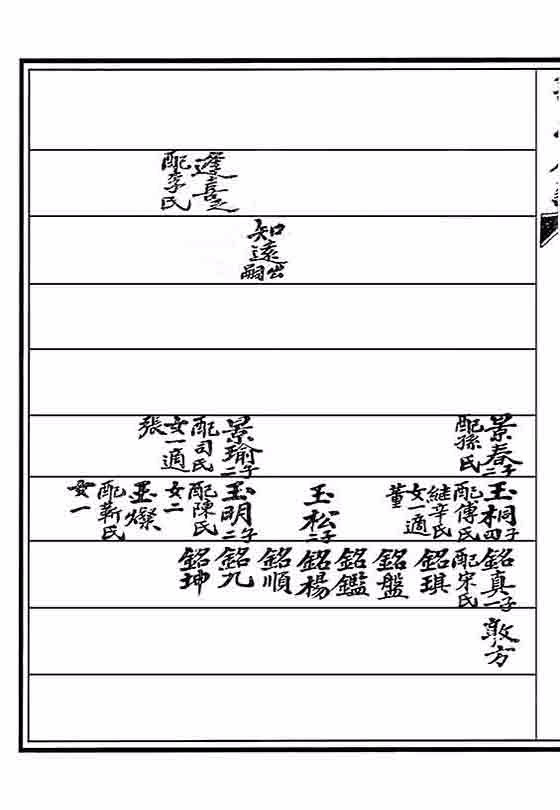 逢喜之
配李氏
知遠出嗣
景春二子
配孫氏
景瑜二子
配司氏
女一適
張
玉桐四子
配傅氏
継辛氏
女一適
董
玉松二子
玉明二子
配陳氏
女二
玉燦
配靳氏
女一
銘真一子
配宋氏
銘琪
銘盤
銘鑑
銘楊
銘順
銘九
銘坤
敦方